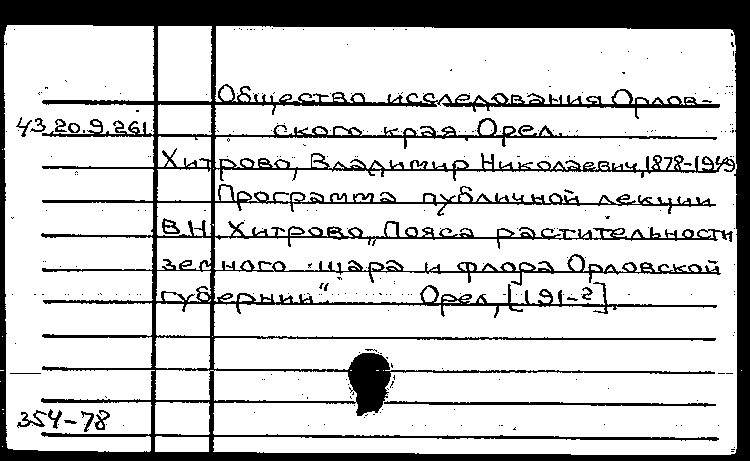 Общество исследования Орлов-
43.20.9.261 ского края. Орел.
Хитрово, Владимир Николаевич, 1878-1949
Программа публичной лекции
В.Н. Хитрово „Пояса растительности
земного шара и флора Орловской
губернии“ Орел, [191-?].
354-78